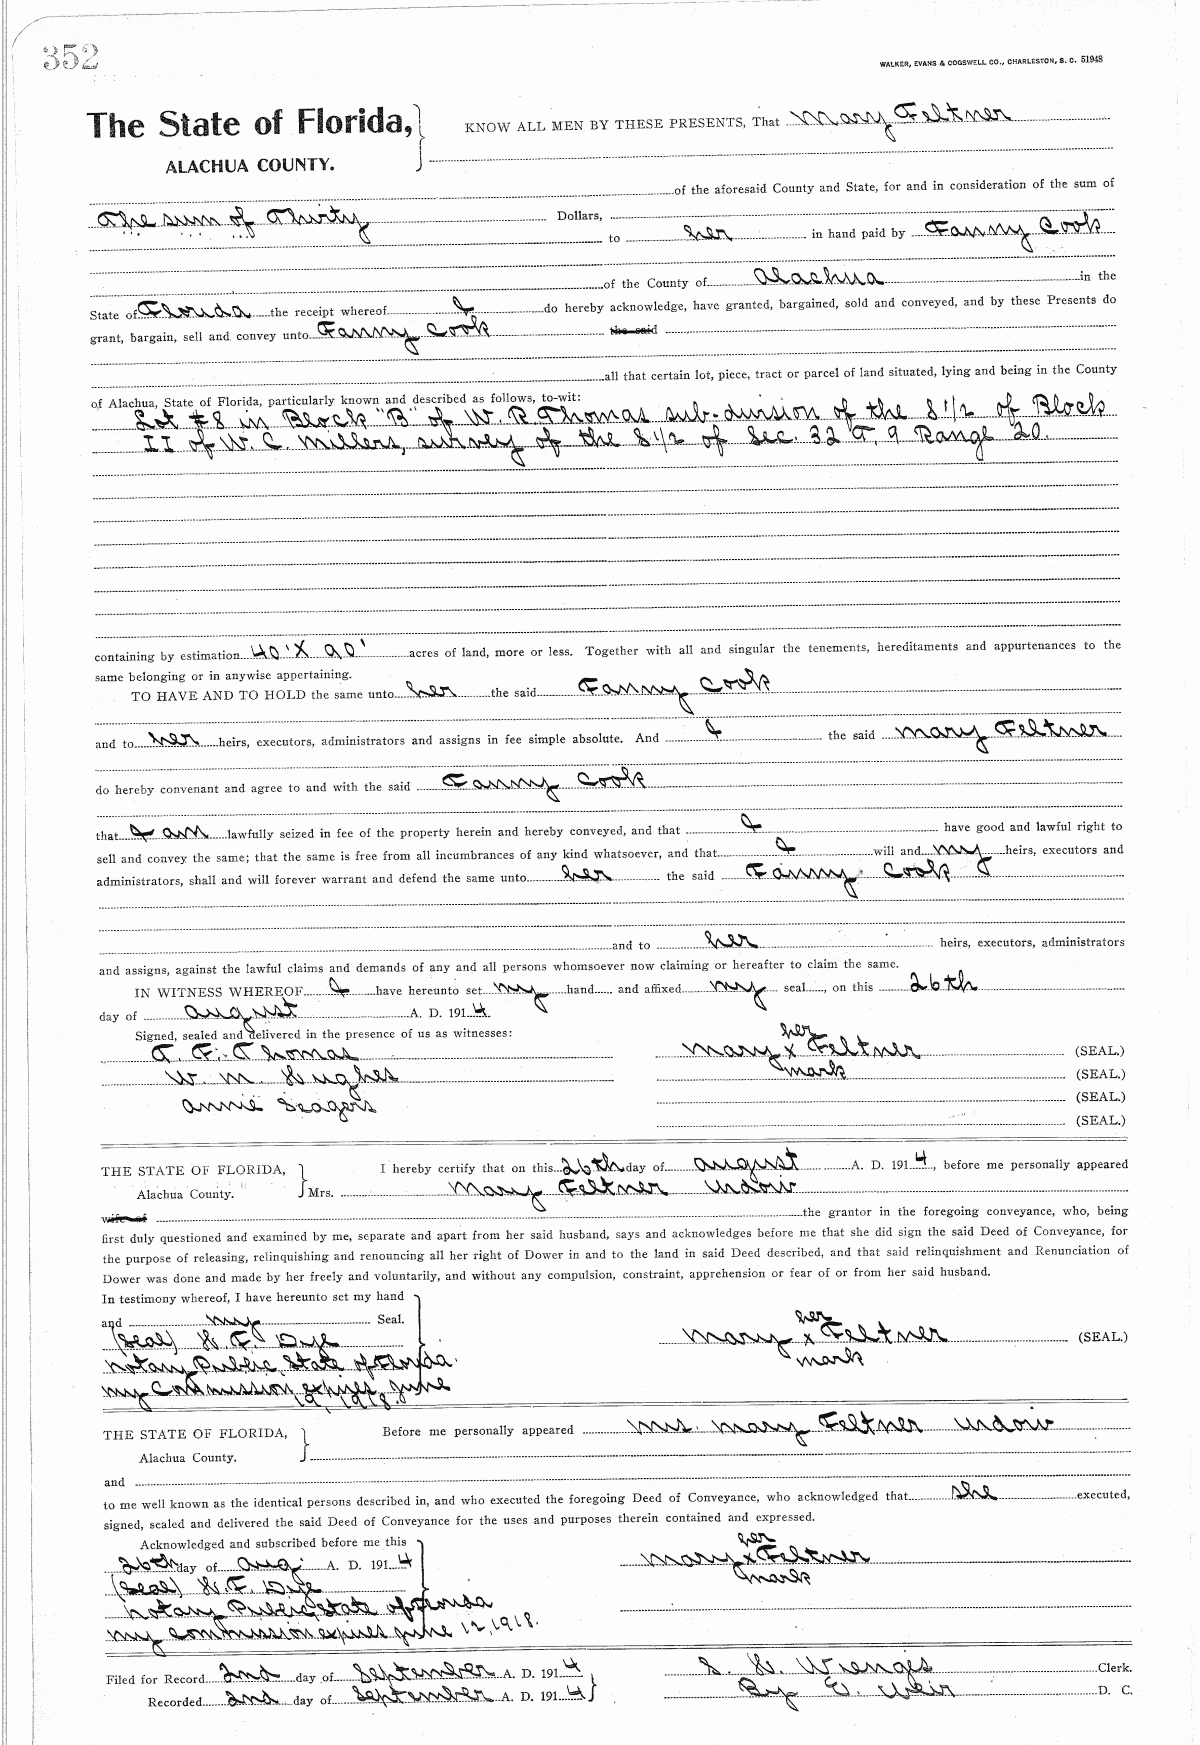 352
WALKER, EVANS & COGSWELL CO., CHARLESTON, S. C. 51948
The State of Florida, KNOW ALL MEN BY THESE PRESENTS, That Mary Feltner
ALACHUA COUNTY.
of the aforesaid County and State, for and in consideration of the sum of
The sum of Thirty Dollars,
to her in hand paid by Fanny Cook
of the County of Alachua in the
State of Florida the receipt whereof I do hereby acknowledge, have granted, bargained, sold and conveyed, and by these Presents do
grant, bargain, sell and convey unto Fanny Cook the said
all that certain lot, piece, tract or parcel of land situated, lying and being in the County
of Alachua, State of Florida, particularly known and described as follows, to-wit:
Lot #8 in Block "B" of W. R Thomas sub-division of the S 1/2 of Block
II of W. C. Millers, survey of the S 1/2 of Sec. 32 T. 9 Range 20.
containing by estimation 40' X 90' acres of land, more or less. Together with all and singular the tenements, hereditaments and appurtenances to the
same belonging or in anywise appertaining.
TO HAVE AND TO HOLD the same unto her the said Fanny Cook
and to her heirs, executors, administrators and assigns in fee simple absolute. And I the said Mary Feltner
do hereby convenant and agree to and with the said Fanny Cook
that I am lawfully seized in fee of the property herein and hereby conveyed, and that I have good and lawful right to
sell and convey the same; that the same is free from all incumbrances of any kind whatsoever, and that I will and my heirs, executors and
administrators, shall and will forever warrant and defend the same unto her the said Fanny Cook
and to her heirs, executors, administrators
and assigns, against the lawful claims and demands of any and all persons whomsoever now claiming or hereafter to claim the same.
IN WITNESS WHEREOF I have hereunto set my hand and affixed my seal, on this 26th
day of August A. D. 1914.
Signed, sealed and delivered in the presence of us as witnesses:
her
T. F. Thomas Mary x Feltner (SEAL.)
W. M. Hughes mark (SEAL.)
Annie Seagers (SEAL.)
(SEAL.)
THE STATE OF FLORIDA, I hereby certify that on this 26th day of August A. D. 1914, before me personally appeared
Alachua County. Mrs. Mary Feltner Widow
wife of the grantor in the foregoing conveyance, who, being
first duly questioned and examined by me, separate and apart from her said husband, says and acknowledges before me that she did sign the said Deed of Conveyance, for
the purpose of releasing, relinquishing and renouncing all her right of Dower in and to the land in said Deed described, and that said relinquishment and Renunciation of
Dower was done and made by her freely and voluntarily, and without any compulsion, constraint, apprehension or fear of or from her said husband.
In testimony whereof, I have hereunto set my hand
and my Seal. her
(Seal) H. F. Dye Mary x Feltner (SEAL.)
Notary Public, State of Florida. mark
My Commission expires, June
1918.
THE STATE OF FLORIDA, Before me personally appeared Mrs. Mary Feltner Widow
Alachua County.
and
to me well known as the identical persons described in, and who executed the foregoing Deed of Conveyance, who acknowledged that she executed,
signed, sealed and delivered the said Deed of Conveyance for the uses and purposes therein contained and expressed.
Acknowledged and subscribed before me this her
26th day of Aug. A. D. 1914 Mary x Feltner
(Seal) H. F. Dye mark
Notary Public, State of Florida
My commission expires June 12, 1918.
Filed for Record 2nd day of September A. D. 1914 S. H. Wienges Clerk.
Recorded 2nd day of September A. D. 1914 By E. Weir D. C.